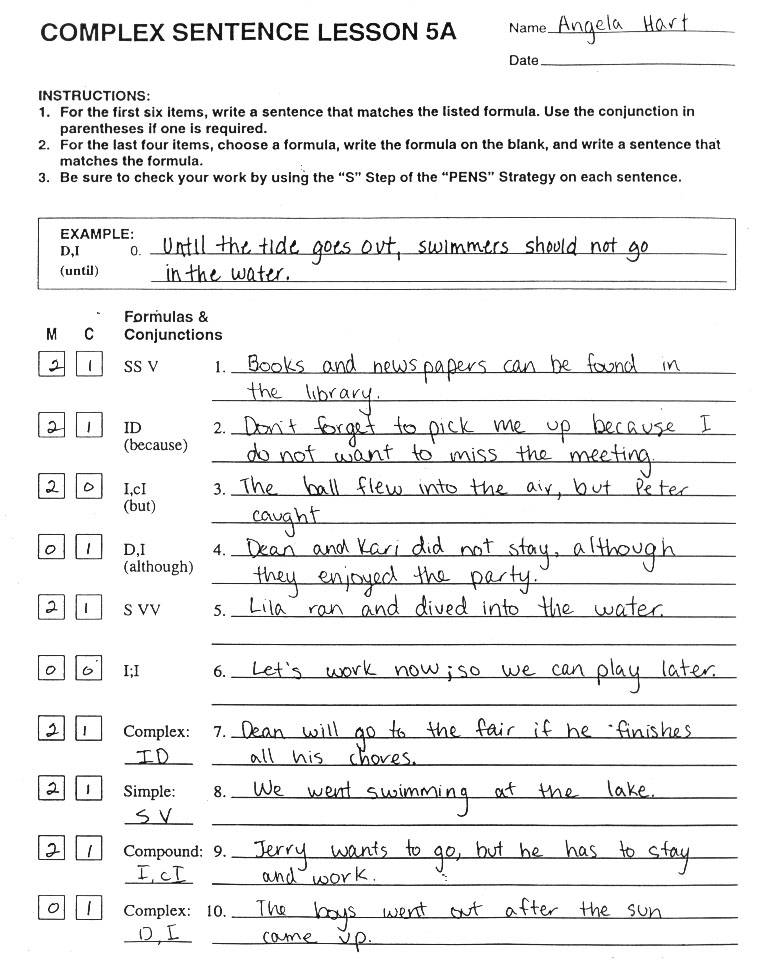 COMPLEX SENTENCE LESSON 5A
Name Angela Hart
Date
INSTRUCTIONS:
1. For the first six items, write a sentence that matches the listed formula. Use the conjunction in
parentheses if one is required.
2. For the last four items, choose a formula, write the formula on the blank, and write a sentence that
matches the formula.
3. Be sure to check your work by using the “S” Step of the “PENS” Strategy on each sentence.
EXAMPLE:
D,I 0. Until the tide goes out, swimmers should not go
(until) in the water.
Formulas &
M C Conjunctions
2 1 SS V 1. Books and newspapers can be found in
the library.
2 1 ID 2. Don't forget to pick me up because I
(because) do not want to miss the meeting.
2 0 I,cI 3. The ball flew into the air, but Peter
(but) caught
0 1 D,I 4. Dean and Kari did not stay, although
(although) they enjoyed the party.
2 1 S VV 5. Lila ran and dived into the water.
0 0 I;I 6. Let's work now; so we can play later.
2 1 Complex: 7. Dean will go to the fair if he finishes
ID all his chores.
2 1 Simple: 8. We went swimming at the lake.
S V
2 1 Compound: 9. Jerry wants to go, but he has to stay
I,cI and work.
0 1 Complex: 10. The boys went out after the sun
D,I came up.